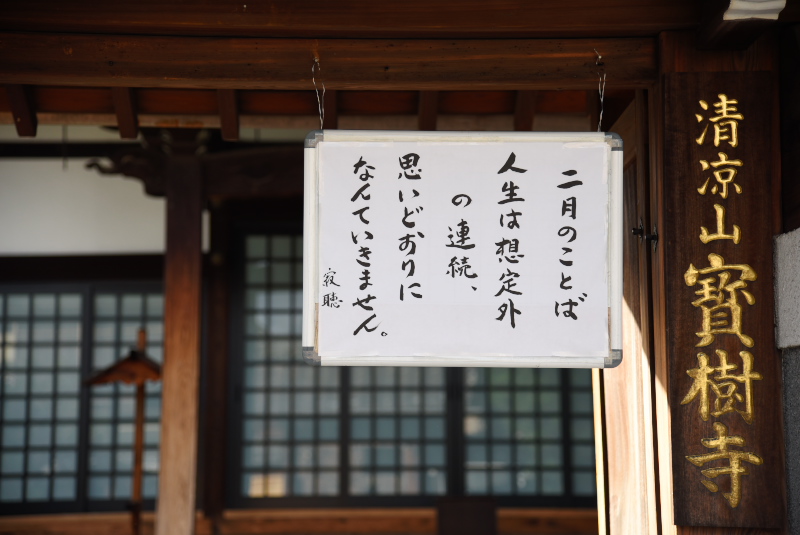 清凉山寶樹寺
二月のことば
人生は想定外
の連続、
思いどおりに
なんていきません。
寂聴